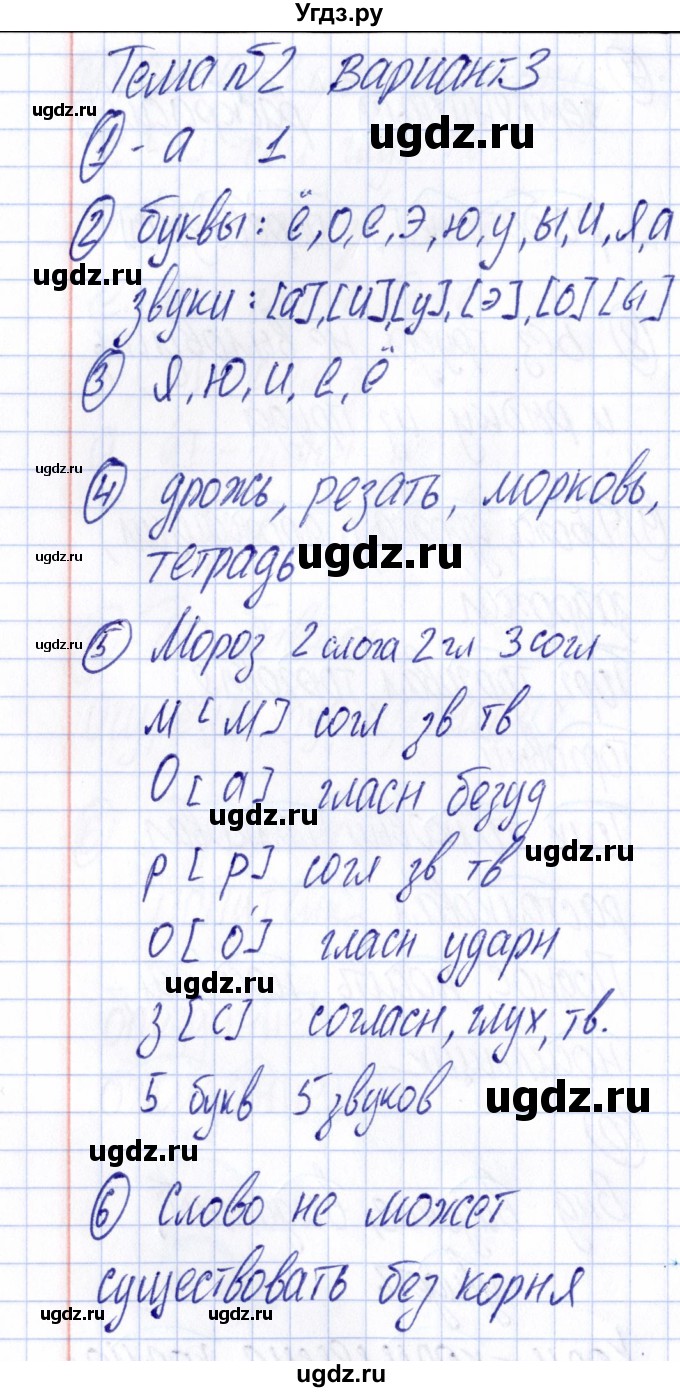 Угдз.ру
Тема №2 вариант 3
ugdz.ru
ugdz.ru
① - а 1
② буквы: ё, о, е, э, ю, у, ы, и, я, а
ugdz.ru
звуки: [а], [и], [у], [э], [о] [ы]
③ я, ю, и, е, ё
ugdz.ru
④ дрожь, резать, морковь,
ugdz.ru
тетрадь
ugdz.ru
ugdz.ru
⑤ Мороз 2 слога 2 гл 3 согл
м [м] согл зв тв
О [а] гласн безуд
ugdz.ru
ugdz.ru
р [р] согл зв тв
о [о́] гласн ударн
ugdz.ru
з [с] согласн, глух, тв.
5 букв 5 звуков
ugdz.ru
ugdz.ru
⑥ Слово не может
существовать без корня
ugdz.ru
ugdz.ru
ugdz.ru